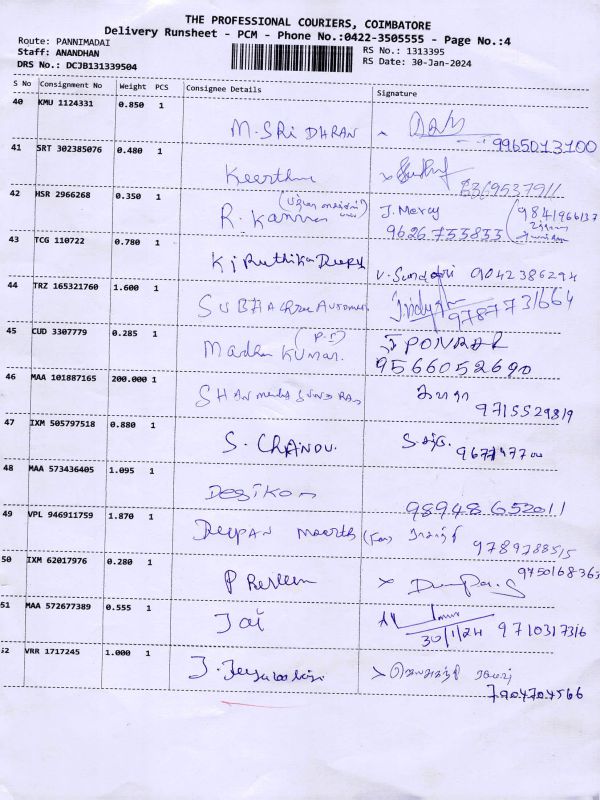 THE PROFESSIONAL COURIERS, COIMBATORE
Delivery Runsheet - PCM - Phone No.:0422-3505555 - Page No.:4
Route: PANNIMADAI
RS No.: 1313395
Staff: ANANDHAN
RS Date: 30-Jan-2024
DRS No.: DCJB131339504
S No Consignment No Weight PCS Consignee Details Signature
40 KMU 1124331 0.850 1
M-SRiDHRAN
9965013100
41 SRT 302385076 0.480 1
Keerthu
42 HSR 2966268 0.350 1
R. Kannan J. Mercy
9841966137
9626755833
43 TCG 110722 0.780 1
Kiruthika Deepa V. Sundari 9042386294
44 TRZ 165321760 1.600 1
9787731664
45 CUD 3307779 0.285 1
(P.T)
Madhan Kumar. J PONRAR
9566052690
46 MAA 101887165 200.000 1
9715529819
47 IXM 505797518 0.880 1
S. CHANDU.
48 MAA 573436405 1.095 1
Desikon
98948652011
49 VPL 946911759 1.870 1
Deepan Moorth (For)
9789288515
50 IXM 62017976 0.280 1
51 MAA 572677389 0.555 1
Jai
30/1/24 9710317316
52 VRR 1717245 1.000 1
7904704566